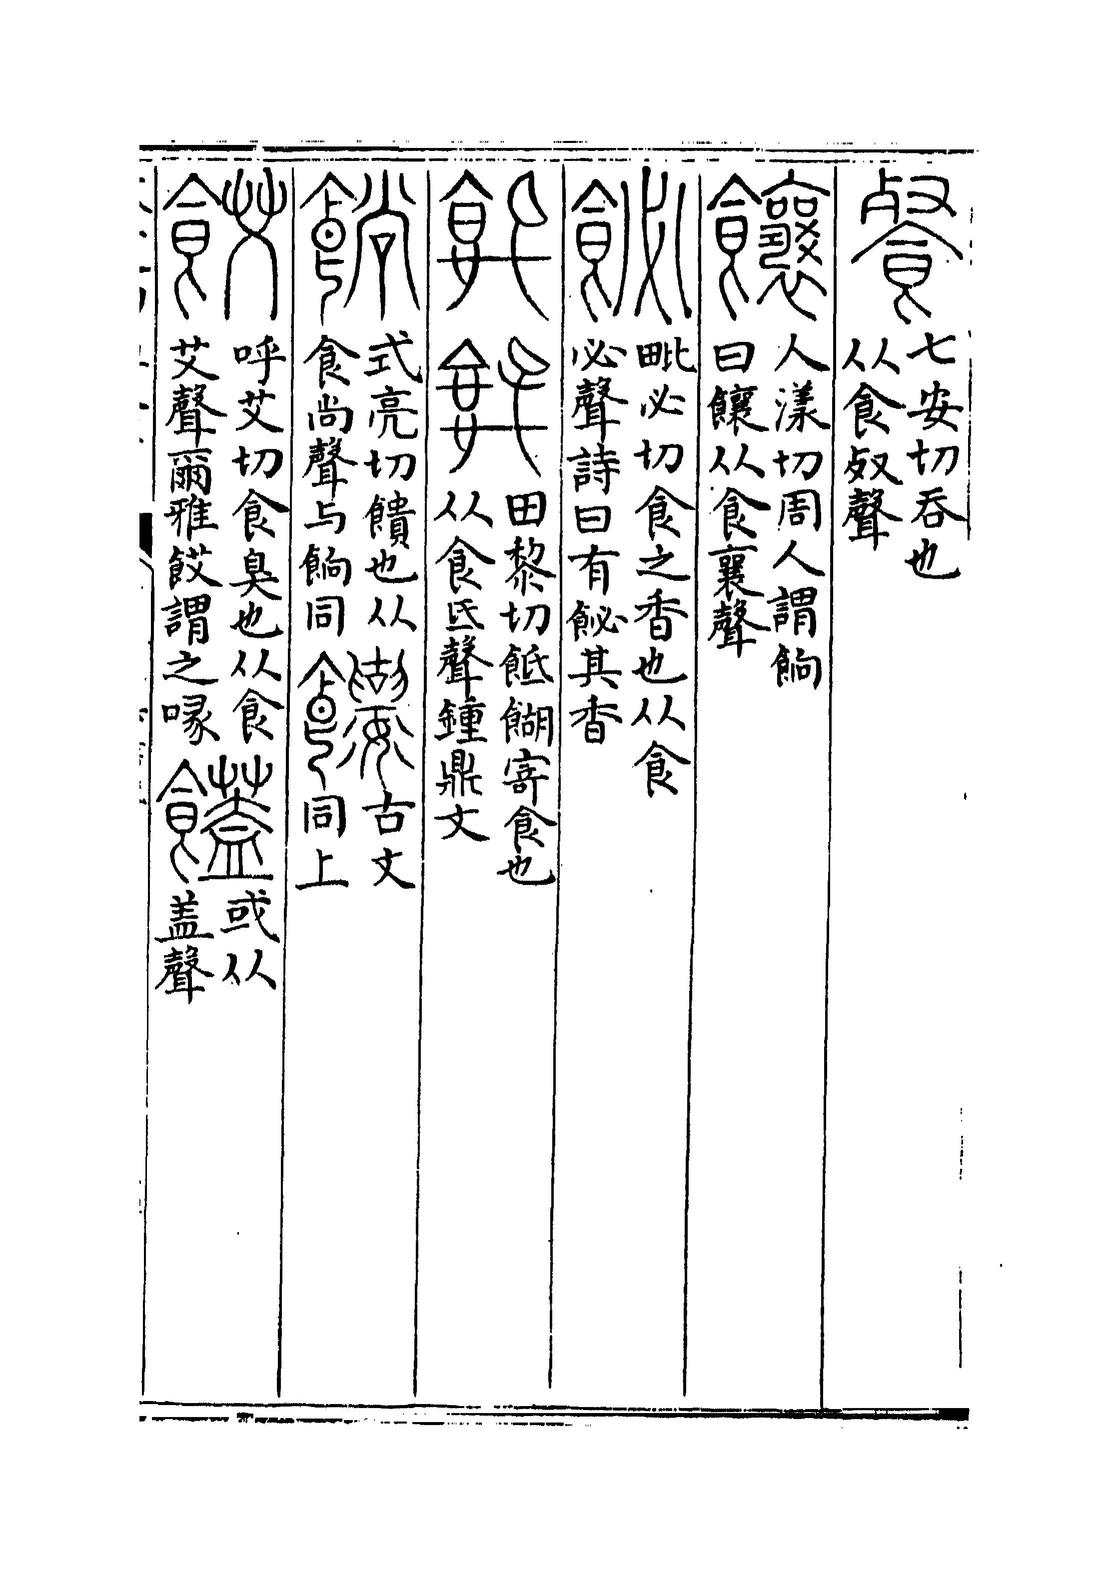 餐
七安切吞也
从食𣦼聲
饟
人漾切周人謂餉
曰饟从食襄聲
飶
毗必切食之香也从食
必聲詩曰有飶其香
田黎切䬫餬寄食也
从食氐聲鐘鼎文
式亮切饋也从
食尚聲与餉同
古文
同上
餀
呼艾切食臭也从食
艾聲爾雅餀謂之喙
或从
盖聲